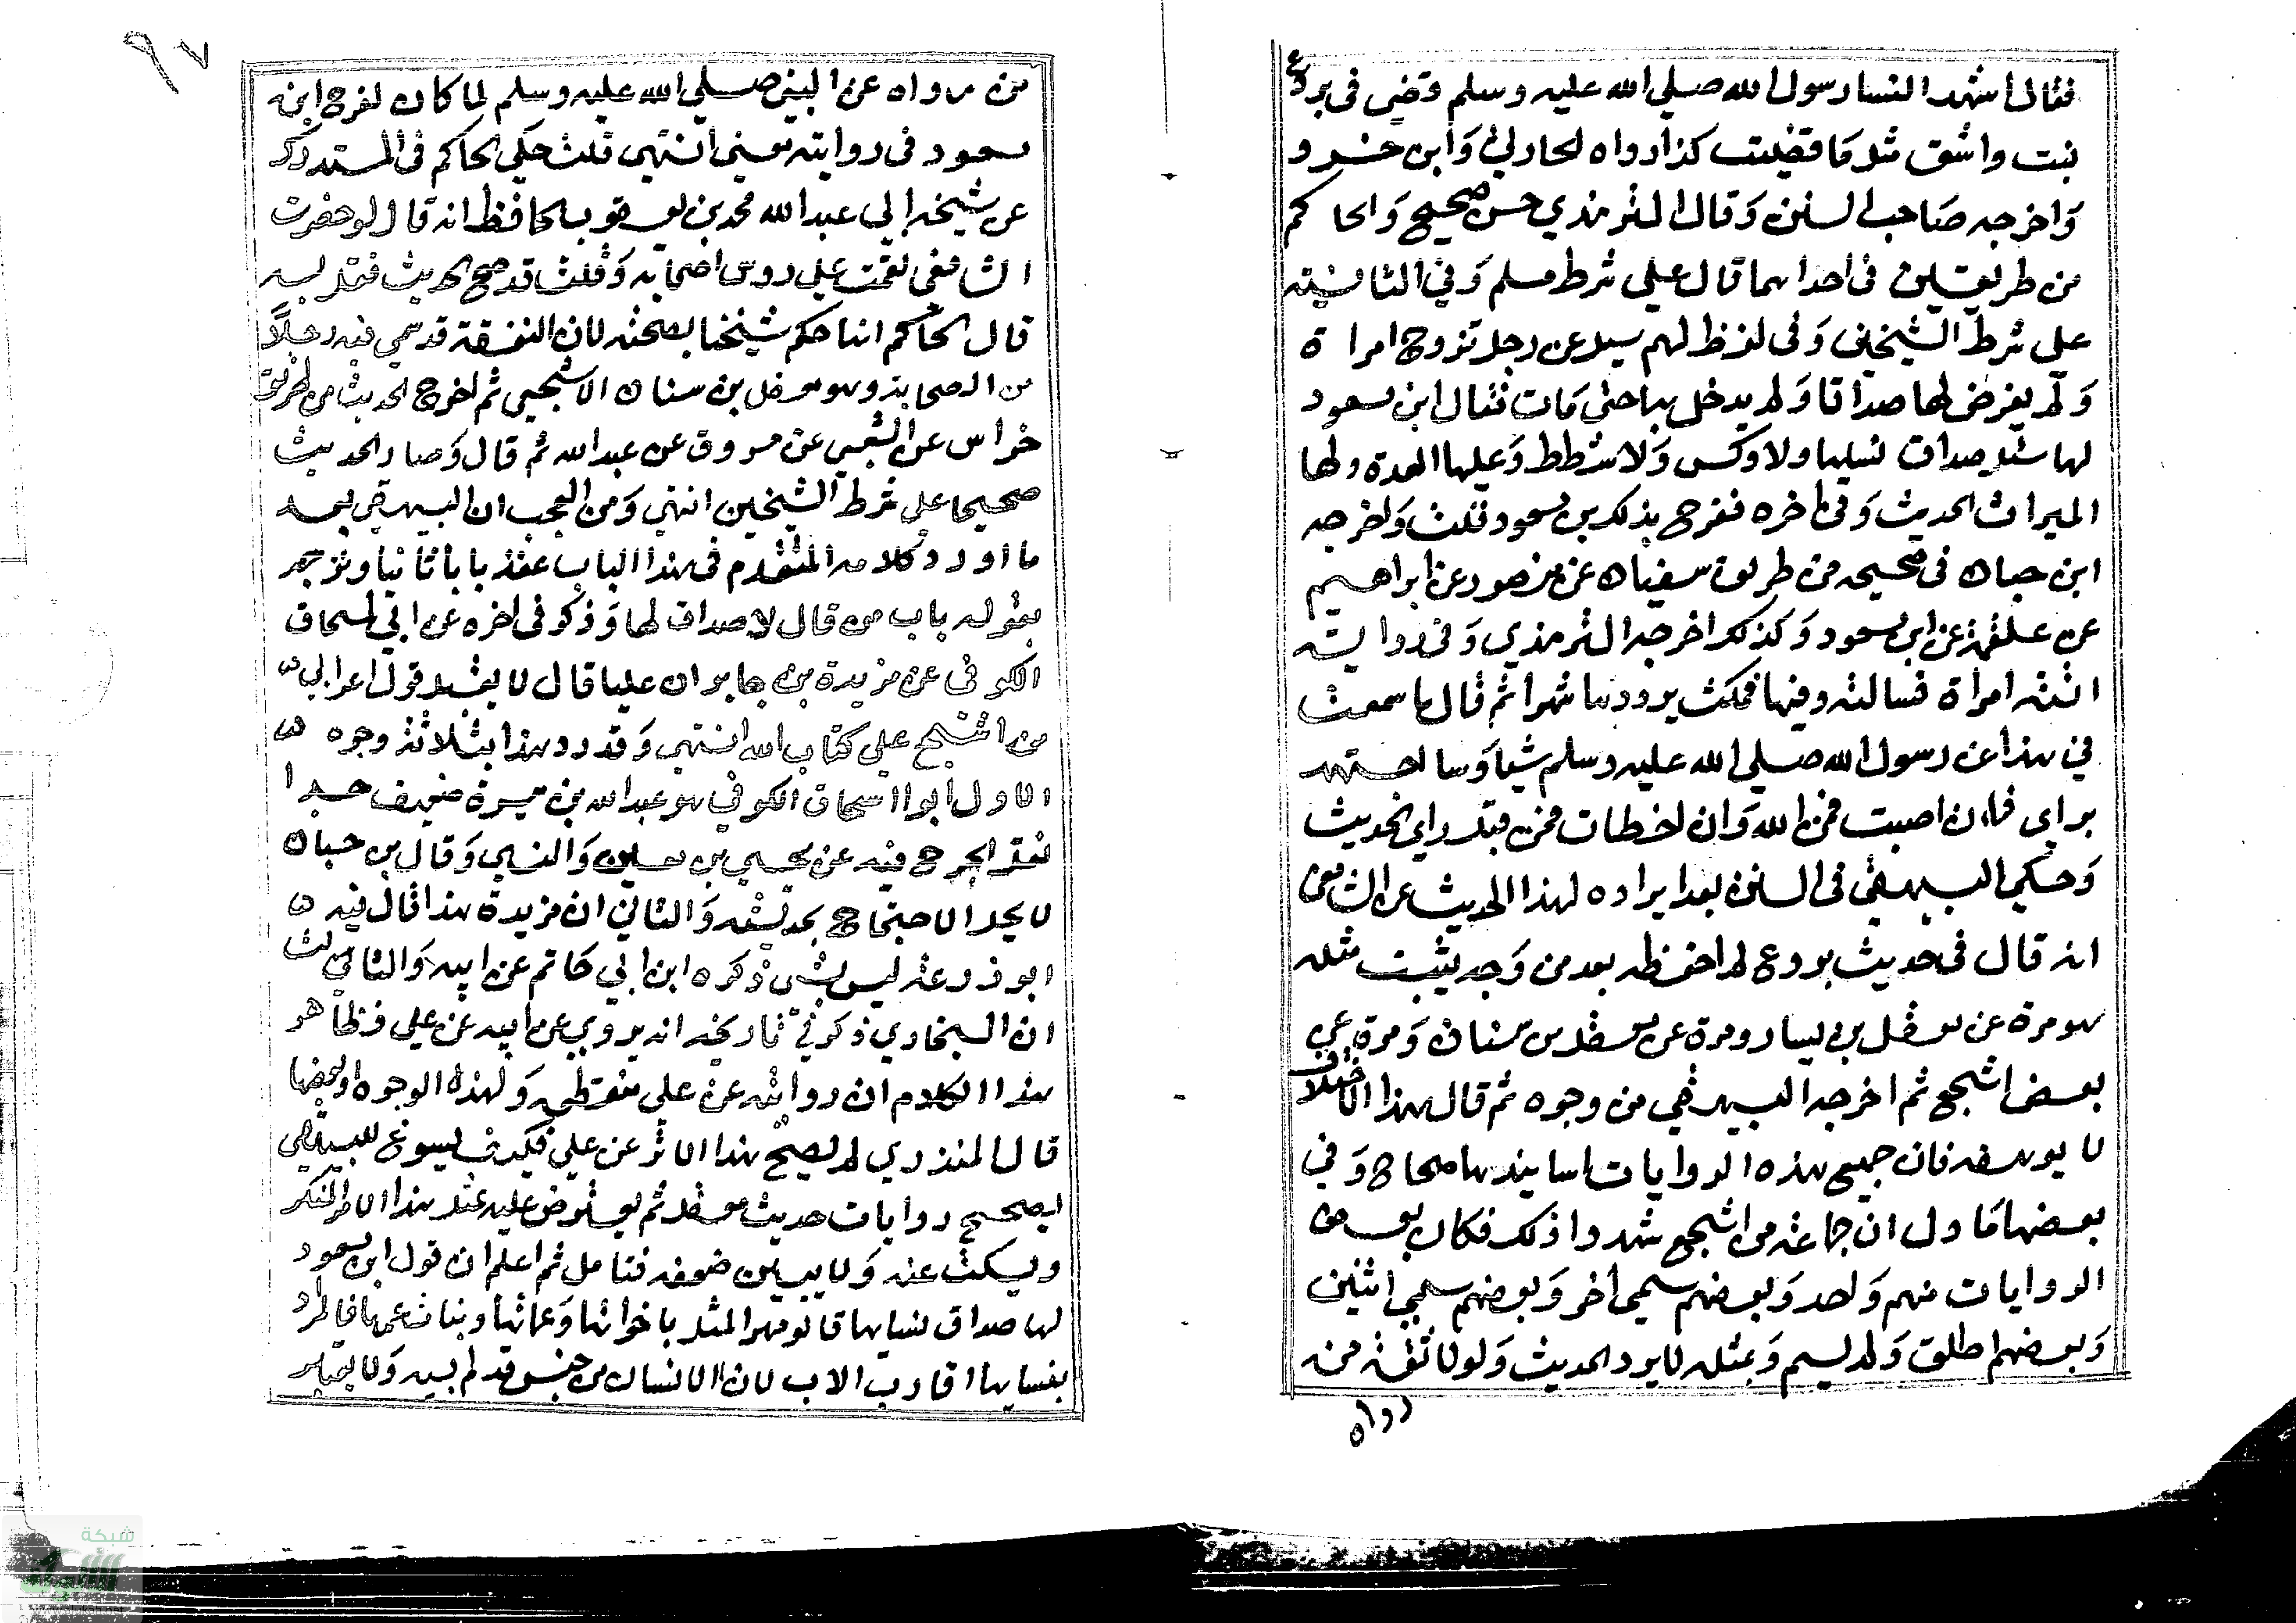 فقال اشهد ان رسول الله صلي الله عليه وسلم قضي في بروع
بنت واشق مثل ما قضيت كذا رواه الحارثي وابن خسرو
واخرجه صاحب السنن وقال الترمذي حسن صحيح والحاكم
من طريقين في احداهما قال علي شرط مسلم وفي الثانية
علي شرط الشيخين وفي لفظ لهم سيل عن رجل تزوج امراة
ولم يفرض لها صداقا ولم يدخل بها حتي مات فقال ابن مسعود
لها مثل صداق نسايها ولا وكس ولا شطط وعليها العدة ولها
الميراث الحديث وفي اخره ففرح بذلك بن مسعود قلت واخرجه
ابن حبان في صحيحه من طريق سفيان عن منصور عن ابراهيم
عن علقمة عن ابن مسعود وكذلك اخرجه الترمذي وفي رواية
اتته امراة فسالته وفيها فمكث يرددها شهرا ثم قال ما سمعت
في هذا عن رسول الله صلي الله عليه وسلم شيا وساجتهد
براي فان اصبت فمن الله وان اخطات فمن قبل راي الحديث
وحكي البيهقي في السنن بعد ايراده لهذا الحديث عن الشافعي
انه قال في حديث بروع لم احفظه بعد من وجه يثبت مثله
هو مرة عن معقل بن يسار ومرة عن معقل بن سنان ومرة عن
بعض اشجع ثم اخرجه البيهقي من وجوه ثم قال هذا الاختلاف
لا يوهنه فان جميع هذه الروايات اسانيدها صحاح وفي
بعضها ما دل ان جماعة من اشجع شهدوا ذلك فكان بعض
الروايات منهم واحد وبعضهم سمي اخر وبعضهم سمي اثنين
وبعضهم اطلق ولم يسم وبمثله لا يرد الحديث ولولا ثقة من
رواه
٩٧
من رواه عن النبي صلي الله عليه وسلم لما كان لفرح ابن
مسعود في روايته معني انتهي قلت حكي الحاكم في المستدرك
عن شيخه ابي عبد الله محمد بن يعقوب الحافظ انه قال لو حضرت
الشافعي لقمت علي روس اصحابه وقلت قد صح الحديث فقل به
قال الحاكم انما حكم شيخنا بصحته لان الثقة قد سمي فيه رجلا
من الصحابة وهو معقل بن سنان الاشجعي ثم اخرج الحديث من طريق
فراس عن الشعبي عن مسروق عن عبد الله ثم قال وصار الحديث
صحيحا علي شرط الشيخين انتهي ومن العجب ان البيهقي بعد
ما اورد كلامه المتقدم في هذا الباب عقد بابا ثانيا وترجم
بقوله باب من قال لا صداق لها وذكر في اخره عن ابي اسحاق
الكوفي عن مزيدة بن جابر ان عليا قال لا يقبل قول اعرابي
من اشجع علي كتاب الله انتهي وقد رد هذا بثلاثة وجوه
الاول ابو اسحاق الكوفي هو عبد الله بن ميسرة ضعيف جدا
نقل الجرح فيه عن يحيي بن معين والنسي وقال بن حبان
لا يحل الاحتجاج بحديثه والثاني ان مزيدة هذا قال فيه
ابو زرعة ليس بشي ذكره ابن ابي حاتم عن ابيه والثالث
ان البخاري ذكر في تاريخه انه يروي عن ابيه عن علي فظاهر
هذا الكلام ان روايته عن علي منقطعة ولهذه الوجوه او بعضها
قال المنذري لم يصح هذا الاثر عن علي فكيف يسوغ للبيهقي
يصحح روايات حديث معقل ثم يعترض عليه بمثل هذا الاثر المنكر
ويسكت عنه ولا يبين ضعفه فتامل ثم اعلم ان قول ابن مسعود
لها صداق نسايها قالو مهر المثل باخواتها وعماتها وبنات عمها فالمراد
بنسايها اقارب الاب لان الانسان من جنس قوم ابيه ولا يعتبر